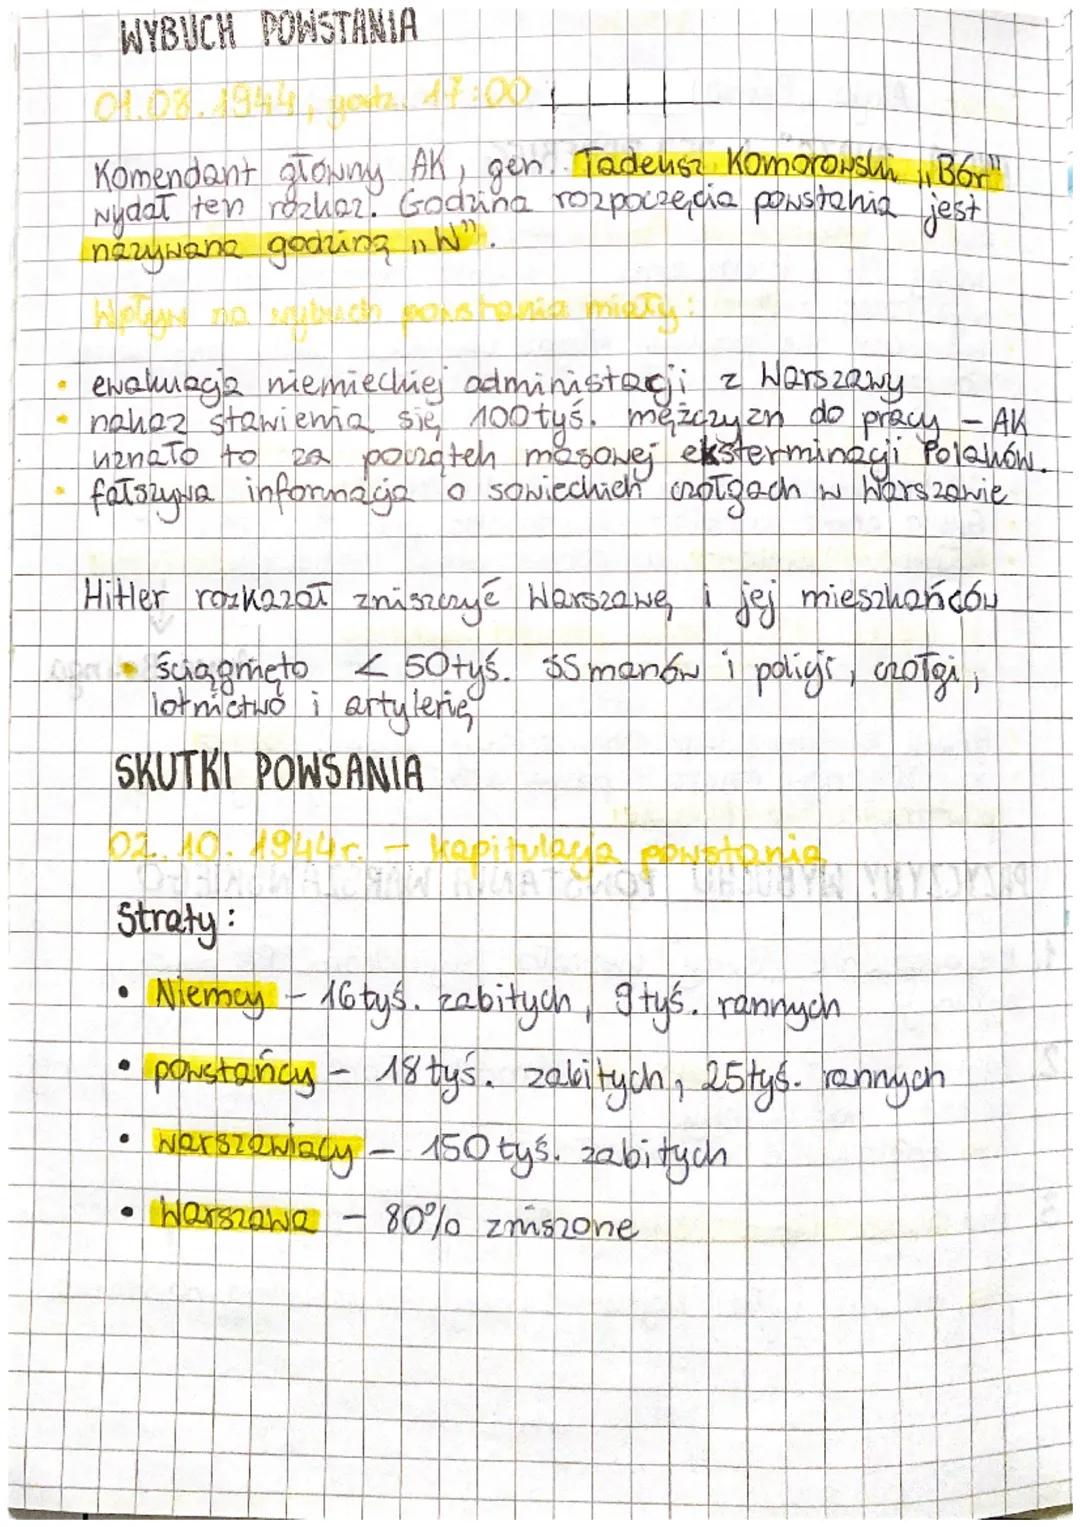 WYBUCH POWSTANIA
01.08.1944, godz. 17:00
Komendant główny AK, gen. Tadeusz Komorowski „Bór"
wydał ten rozkaz. Godzina rozpoczęcia powstania jest
nazywana godziną „W".
Wpływ na wybuch powstania miały:
• ewakuacja niemieckiej administacji z Warszawy
• nakaz stawienia się 100tyś. mężczyzn do pracy – AK
uznało to za początek masowej eksterminacji Polaków.
• fałszywa informacja o sowieckich czołgach w Warszawie
Hitler rozkazał zniszczyć Warszawę i jej mieszkańców
• ściągnięto < 50tyś. SSmanów i policji, czołgi,
lotnictwo i artylerię
SKUTKI POWSANIA
02.10.1944r. – kapitulacja powstania
Straty:
• Niemcy – 16tyś. zabitych, 9tyś. rannych
• powstańcy – 18tyś. zabitych, 25tyś. rannych
• warszawiacy – 150tyś. zabitych
• Warszawa – 80% zniszone